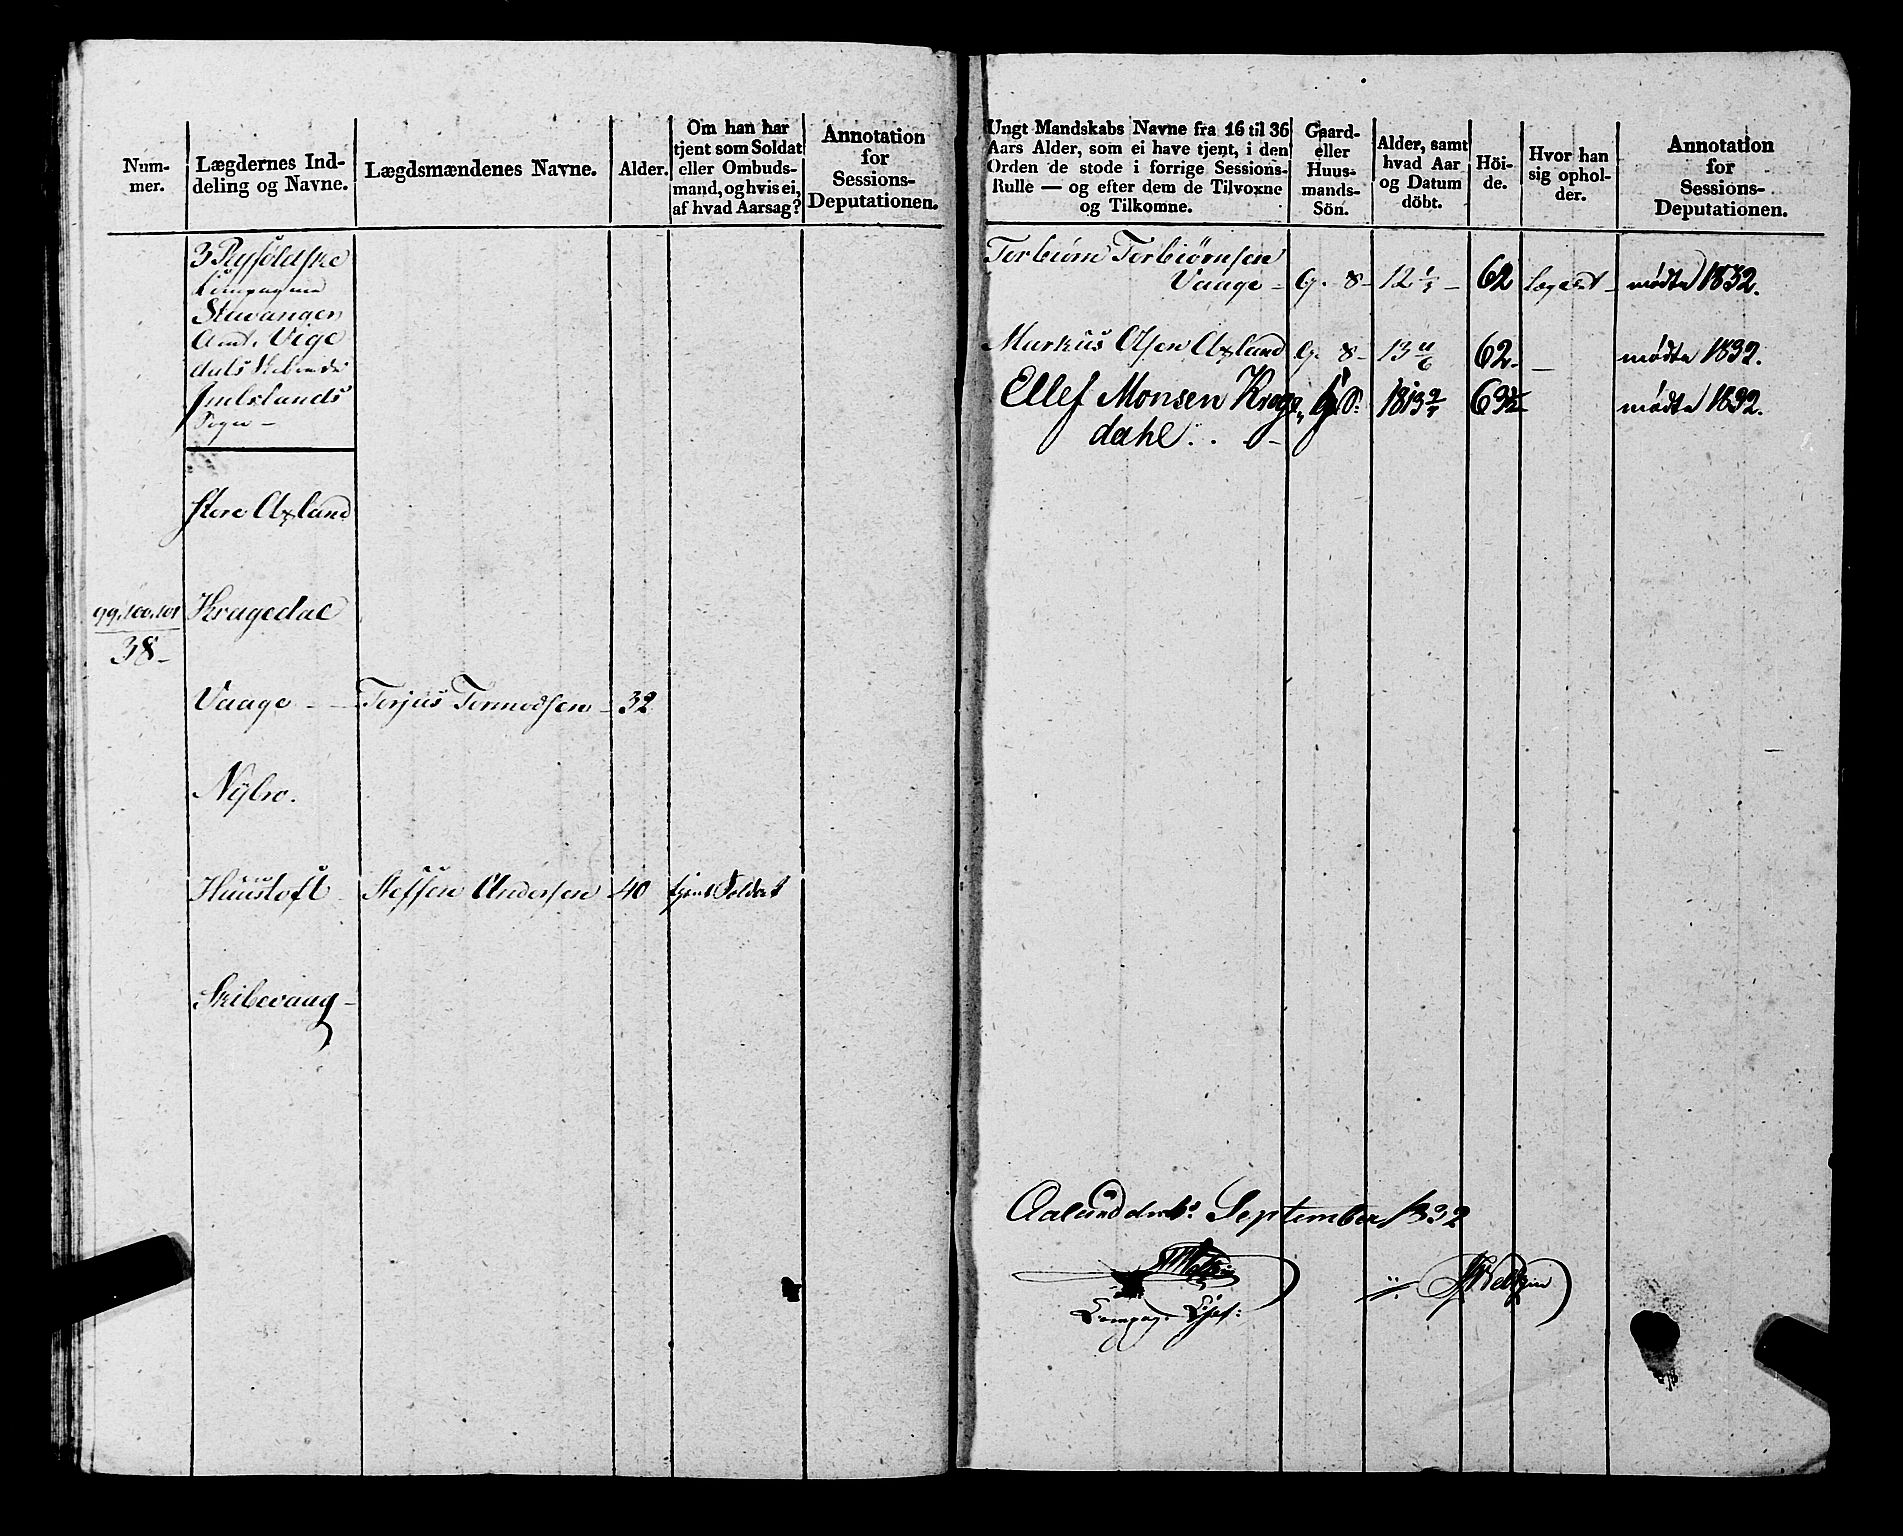 Num-
mer.
Lægdernes Ind-
deling og Navne.
Lægdsmændenes Navne.
Alder.
Om han har
tjent som Soldat
eller Ombuds-
mand, og hvis ei,
af hvad Aarsag?
Annotation
for
Sessions-
Deputationen.
3 Ryföldske
Compagnie
Stavanger
Amt. Vige
dals Skibrede
Imslands
Sogn -
Store Axland
99,100,101
38-
Kragedal
Vaage - - Torjus Tormodsen - 32
Nÿbro.
Huustoft Steffen Andersen 40 tjent Soldat
Skibevaag -
Ungt Mandskabs Navne fra 16 til 36
Aars Alder, som ei have tjent, i den
Orden de stode i forrige Sessions-
Rulle — og efter dem de Tilvoxne
og Tilkomne.
Gaard-
eller
Huus-
mands-
Sön.
Alder, samt
hvad Aar
og Datum
döbt.
Höi-
de.
Hvor han
sig ophol-
der.
Annotation
for
Sessions-
Deputationen.
Torbiørn Torbiørnsen
Vaage - G. S - 12 1/3 - 62 Lægdet - mødte 1832.
Markus Olsen Axland G. S - 13 11/6 62. - mødte 1832.
Ellef Monsen Krage G. S: 1813 2/7 63½ mødte 1832.
dahl. . -
Aalund den September 1832
Compag. Chef: